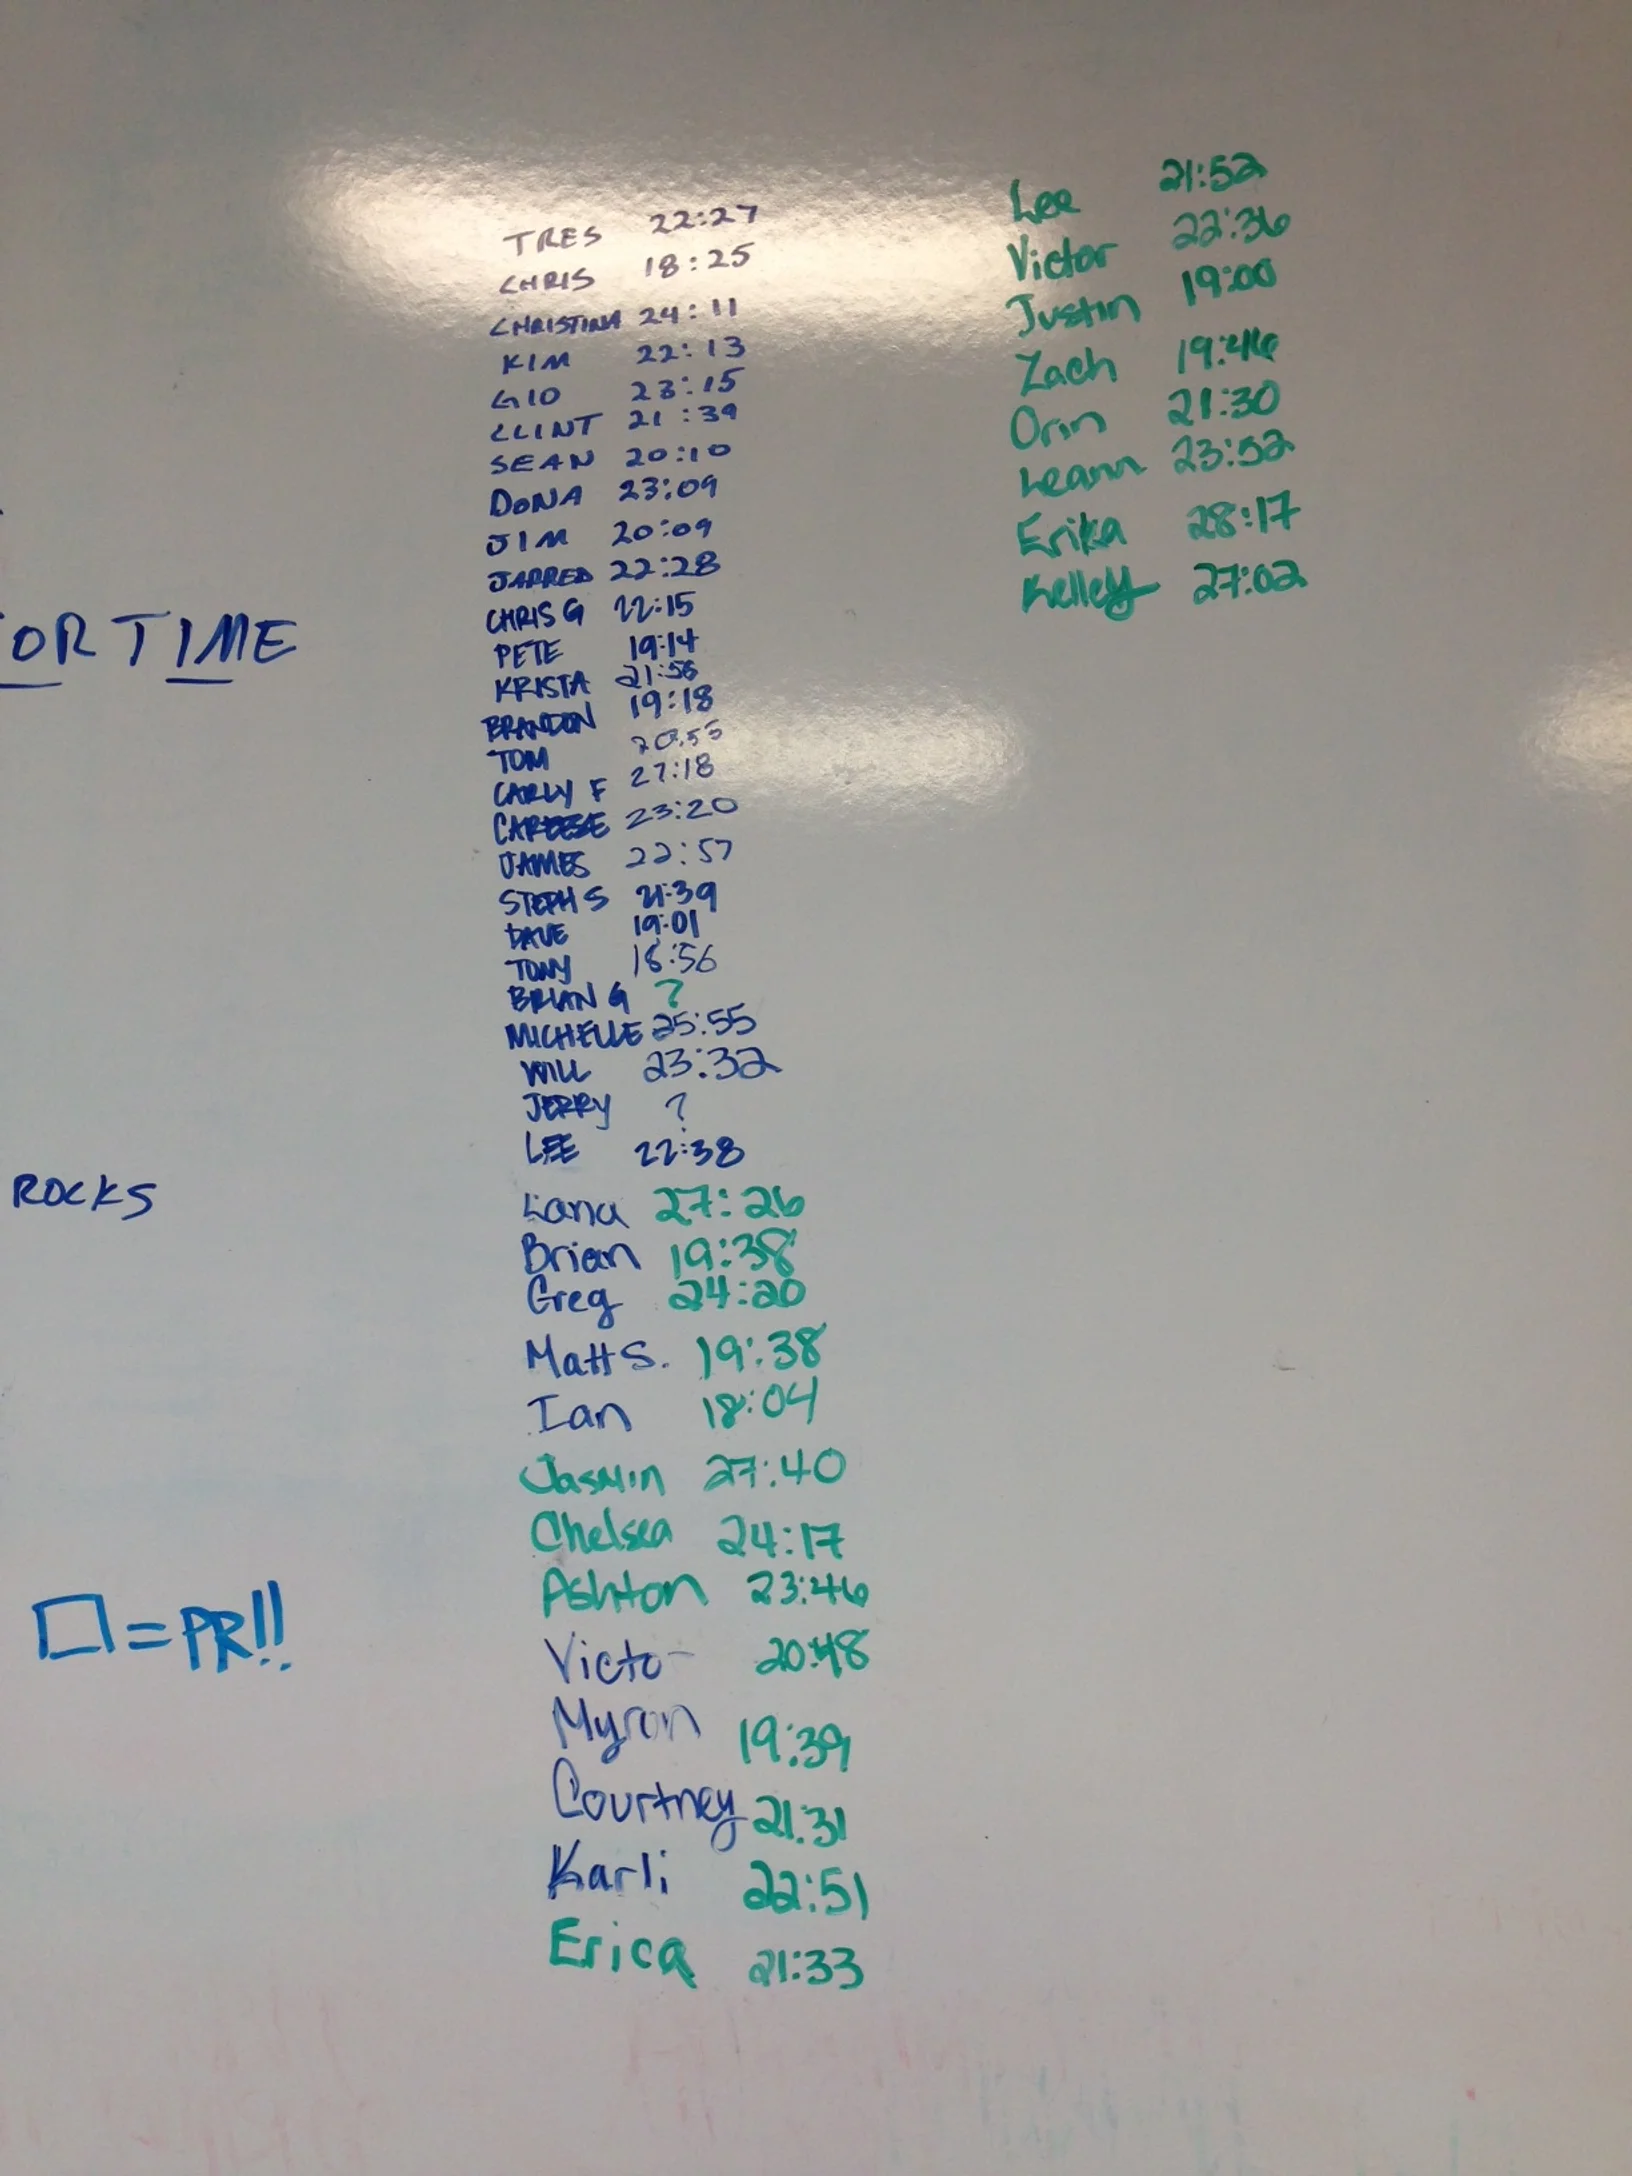 OR TIME
ROCKS
□=PR!!
TRES 22:27
CHRIS 18:25
CHRISTINA 24:11
KIM 22:13
GIO 23:15
CLINT 21:39
SEAN 20:10
DONA 23:09
JIM 20:09
JARRED 22:28
CHRIS G 22:15
PETE 19:14
KRISTA 21:58
BRANDON 19:18
TOM 20:55
CARLY F 27:18
23:20
JAMES 22:57
STEPH S 21:39
DAVE 19:01
TONY 18:56
BRIAN G ?
MICHELLE 25:55
WILL 23:32
JERRY ?
LEE 22:38
Lana 27:26
Brian 19:38
Greg 24:20
Matt S. 19:38
Ian 18:04
Jasmin 27:40
Chelsea 24:17
Ashton 23:46
Victo 20:48
Myron 19:39
Courtney 21:31
Karli 22:51
Erica 21:33
Lee 21:52
Victor 22:36
Justin 19:00
Zach 19:46
Orin 21:30
Leann 23:52
Erika 28:17
Kelley 27:02